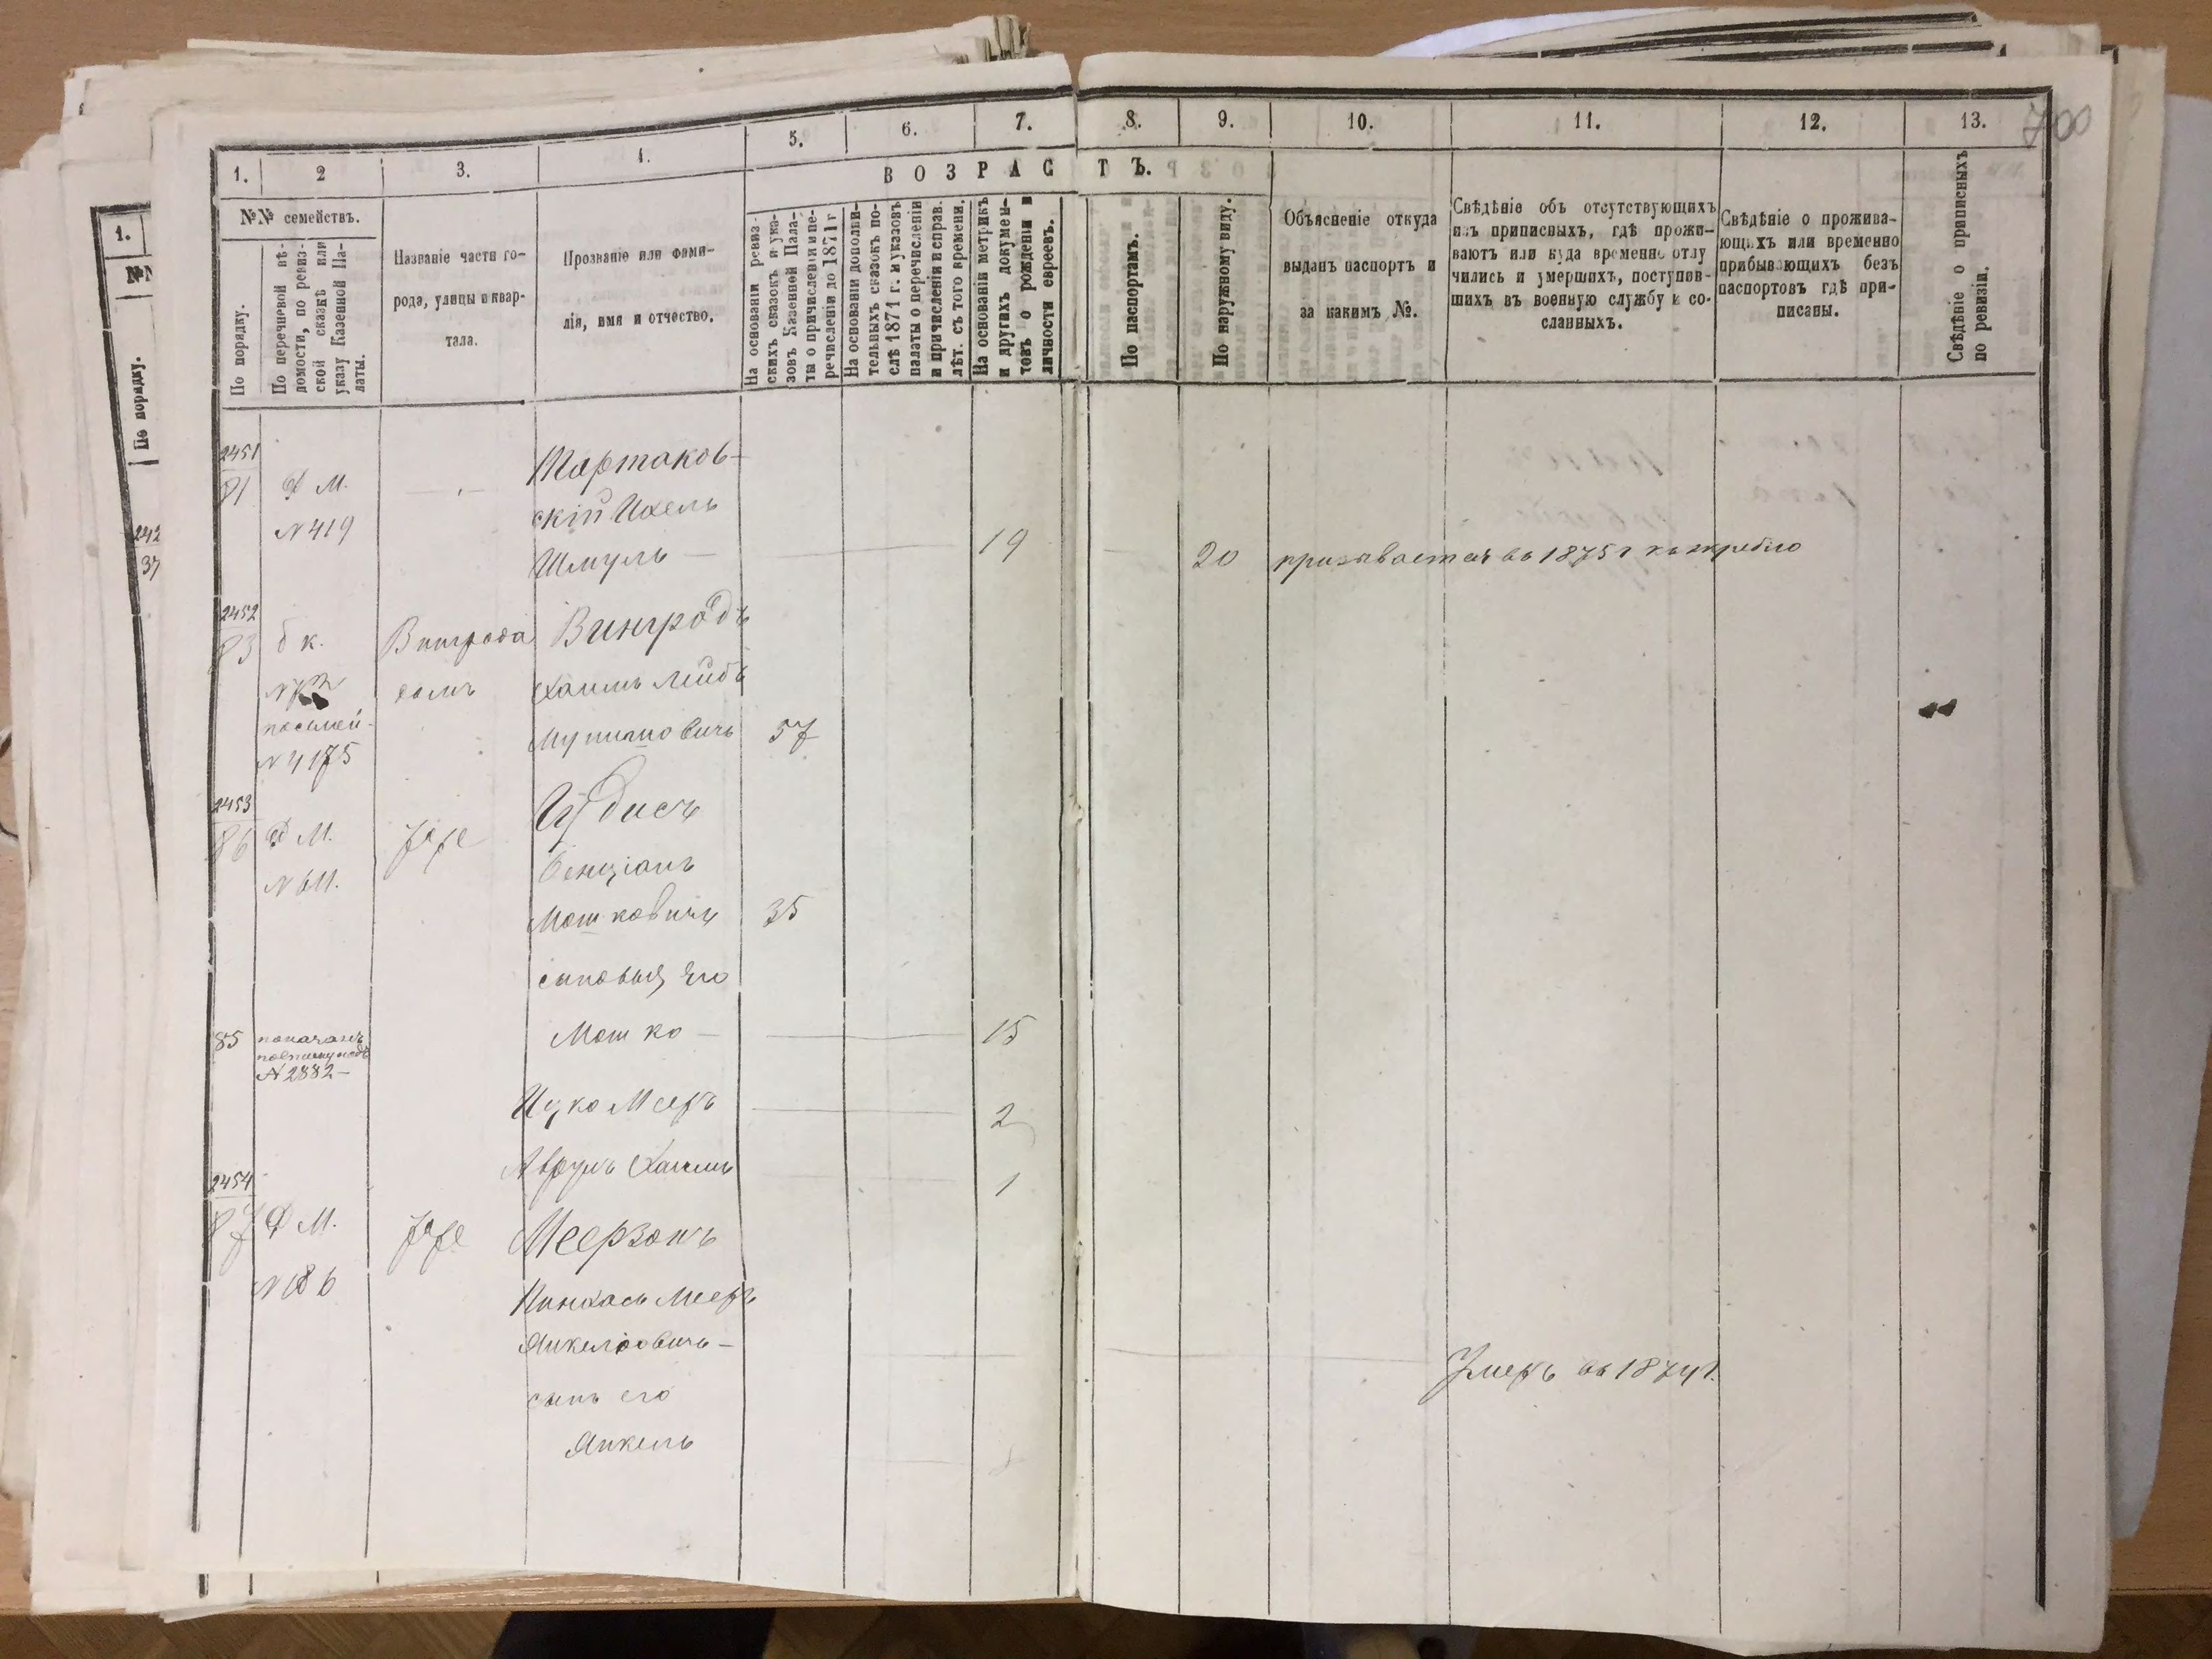 700
1. 2 3. 4. 5. 6. 7. 8. 9. 10. 11. 12. 13.
ВОЗРАСТЪ.
№№ семействъ.
По порядку.
По перечневой вѣ-
домости, по ревиз-
ской сказкѣ или
указу Казенной Па-
латы.
Названіе части го-
рода, улицы и квар-
тала.
Прозваніе или фами-
лія, имя и отчество.
На основаніи ревиз-
скихъ сказокъ и ука-
зовъ Казенней Пала-
ты о причисленіи и пе-
речисленіи до 1871 г
На основаніи дополни-
тельныхъ сказокъ по-
слѣ 1871 г. и указовъ
палаты о перечисленіи
и причисленіи и справ.
лѣт. съ того времени.
На основаніи метрикъ
и другихъ докумен-
товъ о рожденіи и
личности евреевъ.
По паспортамъ.
По наружному виду.
Объясненіе откуда
выданъ паспортъ и
за какимъ №.
Свѣдѣніе объ отсутствующихъ
изъ приписныхъ, гдѣ прожи-
ваютъ или куда временно отлу
чились и умершихъ, поступив-
шихъ въ военную службу и со-
сланныхъ.
Свѣдѣніе о прожива-
ющихъ или временно
прибывающихъ безъ
паспортовъ гдѣ при-
писаны.
Свѣдѣніе о приписныхъ
по ревизіи.
1.
По порядку.
242
37
2451 Мартаков-
81 Ф М.
скій Ихель
N 419
Шмуль — 19 — 20 призывается въ 1875 г къ жребію
2452
83 б к. Винграда Винградъ
домъ Хаимъ Лейбъ
посемей-
N 4175
57
2453 Юдисъ
86 Ф М.
N 611. Бенціанъ
Мошковичъ 35
сыновья Его
85 показанъ Мошко — 15
N 2882—
Ицко Мееръ 2
Аврумъ Хаимъ 1
2454
87 Ф М. Меерзонъ
N 186
Пинхасъ Мееръ
Янкеловичъ — Умеръ въ 1874 г.
сынъ его
Янкель